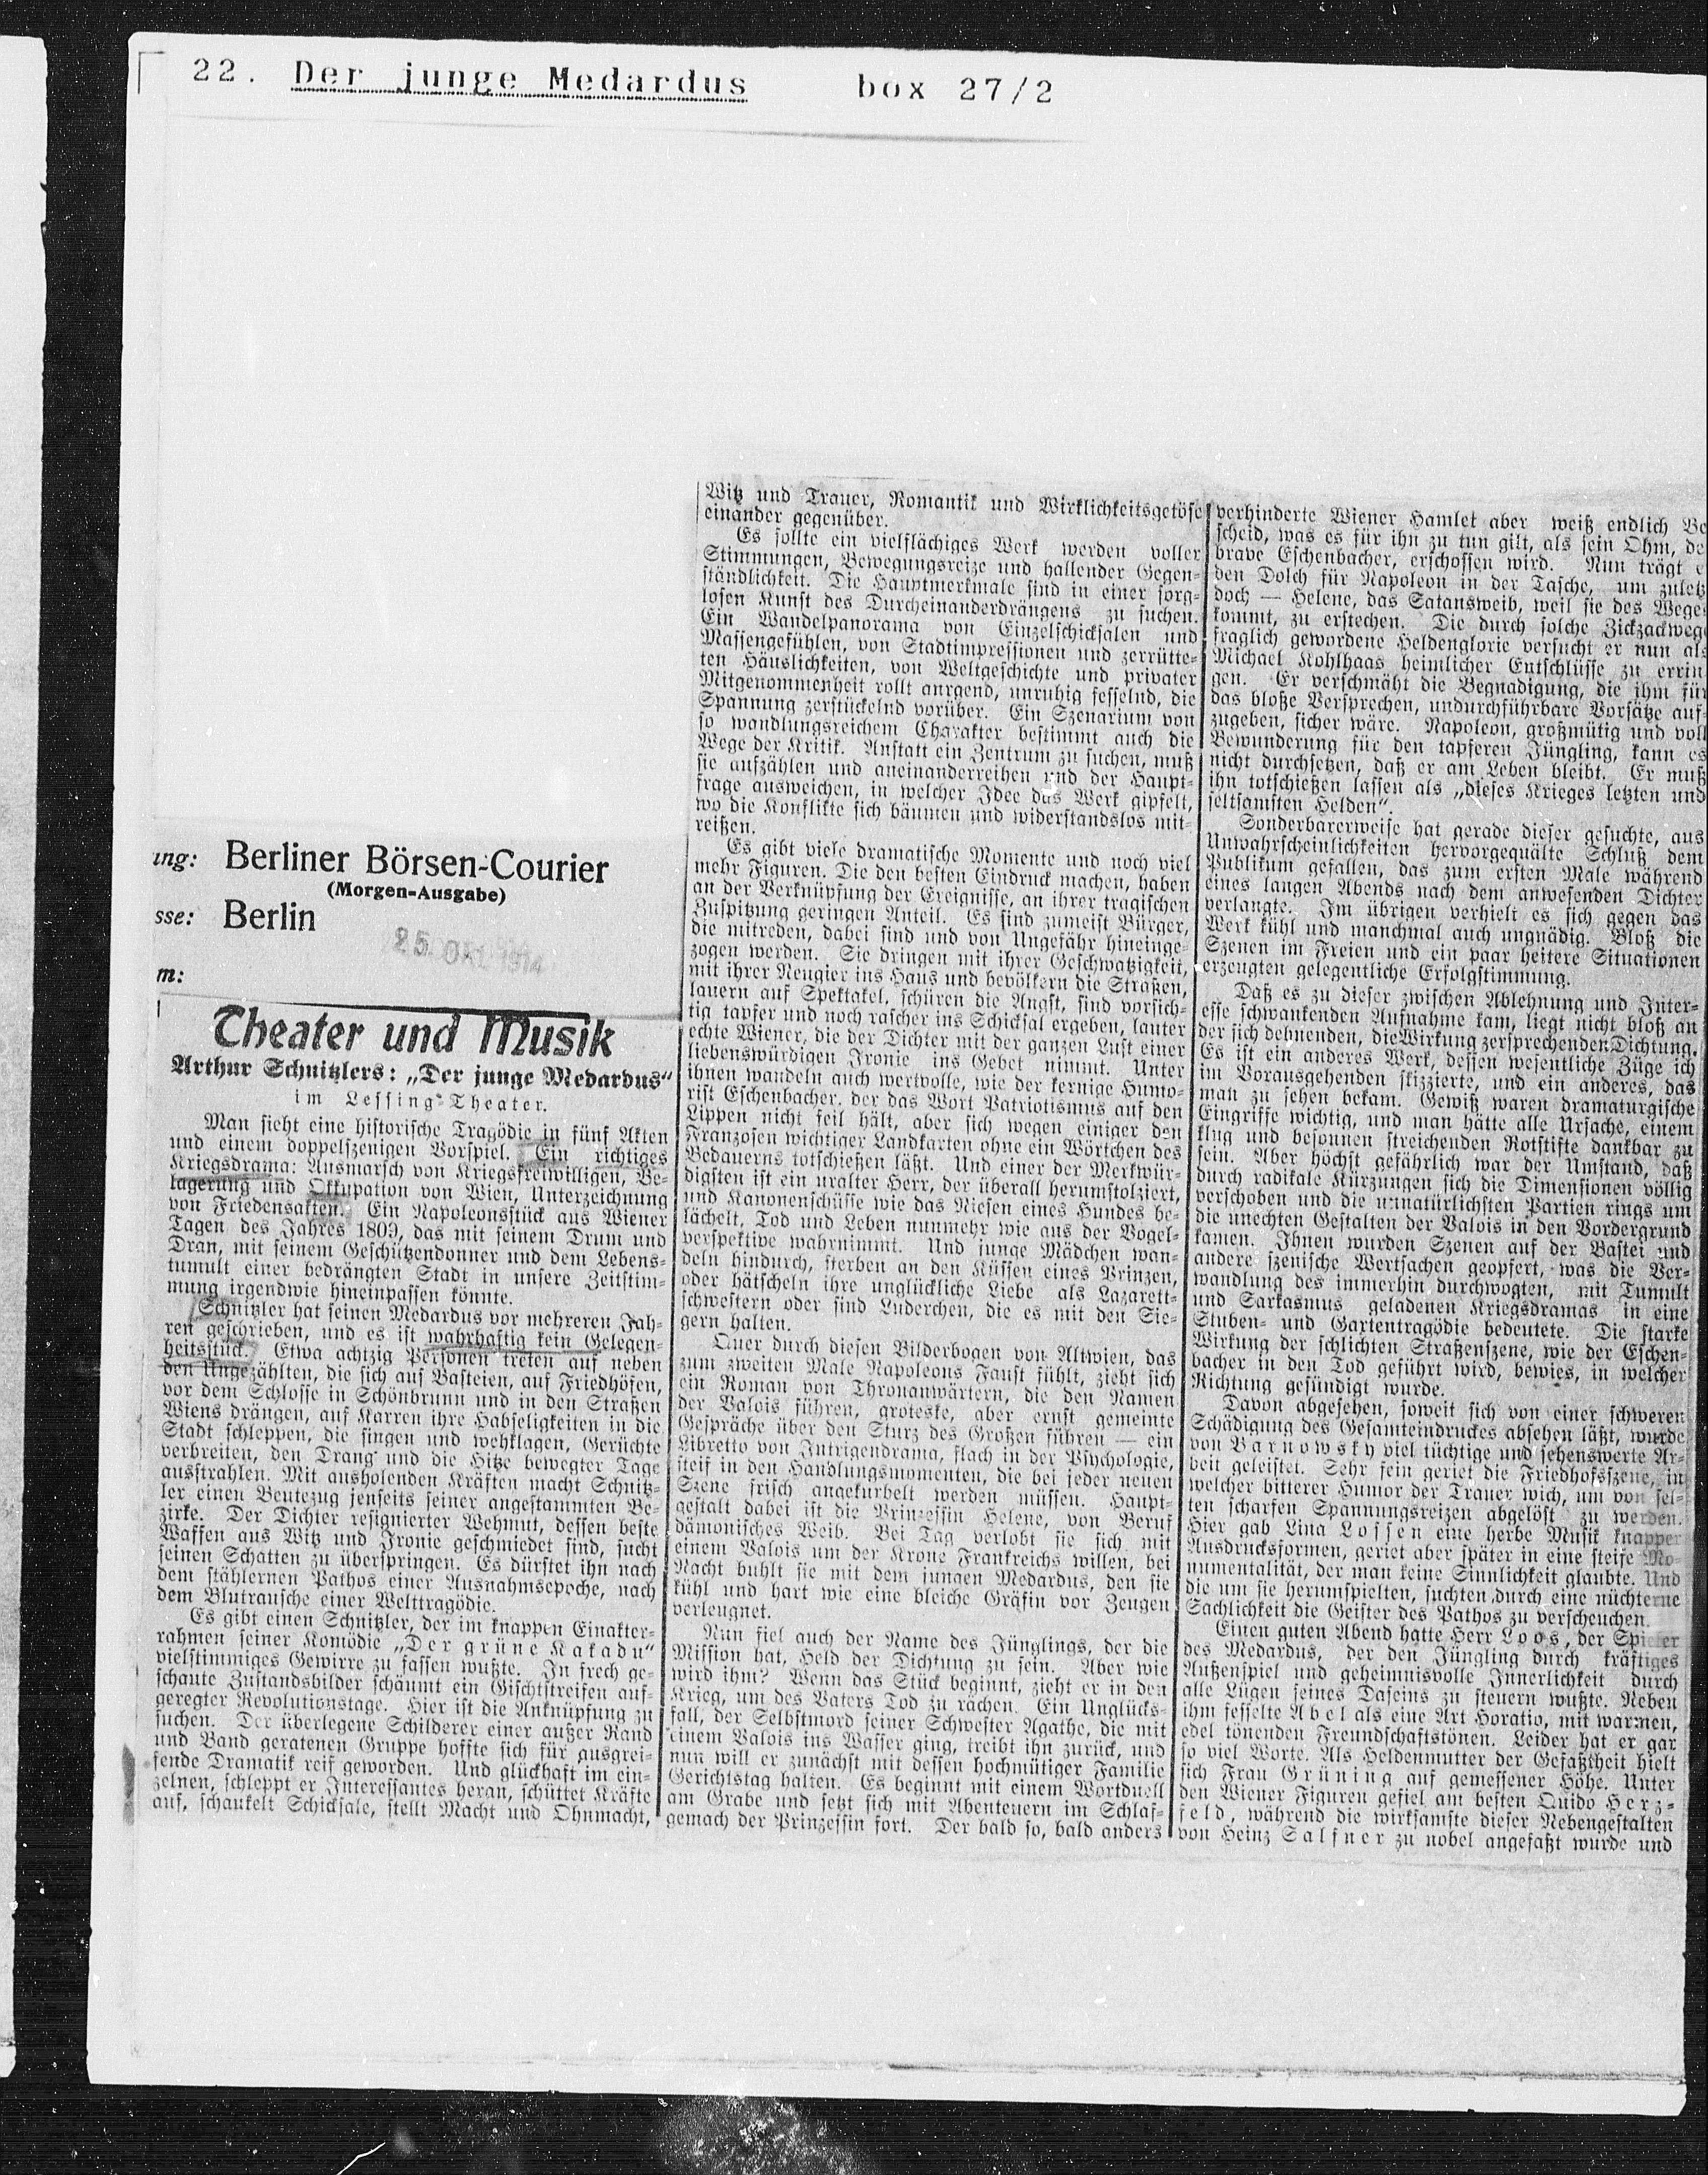 22. Der junge Medardus box 27/2
ung: Berliner Börsen-Courier
(Morgen-Ausgabe)
sse: Berlin
25. Okt. 1914
m:
Theater und Musik
Arthur Schnitzlers: „Der junge Medardus“
im Lessing-Theater.
Man sieht eine historische Tragödie in fünf Akten
und einem doppelszenigen Vorspiel. Ein richtiges
Kriegsdrama: Ausmarsch von Kriegsfreiwilligen, Be-
lagerung und Okkupation von Wien, Unterzeichnung
von Friedensakten. Ein Napoleonsstück aus Wiener
Tagen des Jahres 1809, das mit seinem Drum und
Dran, mit seinem Geschützendonner und dem Lebens-
tumult einer bedrängten Stadt in unsere Zeitstim-
mung irgendwie hineinpassen könnte.
Schnitzler hat seinen Medardus vor mehreren Jah-
ren geschrieben, und es ist wahrhaftig kein Gelegen-
heitsstück. Etwa achtzig Personen treten auf neben
den Ungezählten, die sich auf Basteien, auf Friedhöfen,
vor dem Schlosse in Schönbrunn und in den Straßen
Wiens drängen, auf Karren ihre Habseligkeiten in die
Stadt schleppen, die singen und wehklagen, Gerüchte
verbreiten, den Drang und die Hitze bewegter Tage
ausstrahlen. Mit ausholenden Kräften macht Schnitz-
ler einen Beutezug jenseits seiner angestammten Be-
zirke. Der Dichter resignierter Wehmut, dessen beste
Waffen aus Witz und Ironie geschmiedet sind, sucht
seinen Schatten zu überspringen. Es dürstet ihn nach
dem stählernen Pathos einer Ausnahmsepoche, nach
dem Blutrausche einer Welttragödie.
Es gibt einen Schnitzler, der im knappen Einakter-
rahmen seiner Komödie „Der grüne Kakadu“
vielstimmiges Gewirre zu fassen wußte. In frech ge-
schaute Zustandsbilder schäumt ein Gischtstreifen auf-
geregter Revolutionstage. Hier ist die Anknüpfung zu
suchen. Der überlegene Schilderer einer außer Rand
und Band geratenen Gruppe hoffte sich für ausgrei-
fende Dramatik reif geworden. Und glückhaft im ein-
zelnen, schleppt er Interessantes heran, schüttet Kräfte
auf, schaukelt Schicksale, stellt Macht und Ohnmacht,
Witz und Trauer, Romantik und Wirklichkeitsgetöse
einander gegenüber.
Es sollte ein vielflächiges Werk werden voller
Stimmungen, Bewegungsreize und hallender Gegen-
ständlichkeit. Die Hauptmerkmale sind in einer sorg-
losen Kunst des Durcheinanderdrängens zu suchen.
Ein Wandelpanorama von Einzelschicksalen und
Massengefühlen, von Stadtimpressionen und zerrütte-
ten Häuslichkeiten, von Weltgeschichte und privater
Mitgenommenheit rollt anrgend, unruhig fesselnd, die
Spannung zerstückelnd vorüber. Ein Szenarium von
so wandlungsreichem Charakter bestimmt auch die
Wege der Kritik. Anstatt ein Zentrum zu suchen, muß
sie aufzählen und aneinanderreihen und der Haupt-
frage ausweichen, in welcher Idee das Werk gipfelt,
wo die Konflikte sich bäumen und widerstandslos mit-
reißen.
Es gibt viele dramatische Momente und noch viel
mehr Figuren. Die den besten Eindruck machen, haben
an der Verknüpfung der Ereignisse, an ihrer tragischen
Zuspitzung geringen Anteil. Es sind zumeist Bürger,
die mitreden, dabei sind und von Ungefähr hineinge-
zogen werden. Sie dringen mit ihrer Geschwatzigkeit,
mit ihrer Neugier ins Haus und bevölkern die Straßen,
lauern auf Spektakel, schüren die Angst, sind vorsich-
tig tapfer und noch rascher ins Schicksal ergeben, lauter
echte Wiener, die der Dichter mit der ganzen Lust einer
liebenswürdigen Ironie ins Gebet nimmt. Unter
ihnen wandeln auch wertvolle, wie der kernige Humo-
rist Eschenbacher, der das Wort Patriotismus auf den
Lippen nicht feil hält, aber sich wegen einiger den
Franzosen wichtiger Landkarten ohne ein Wörtchen des
Bedauerns totschießen läßt. Und einer der Merkwür-
digsten ist ein uralter Herr, der überall herumstolziert,
und Kanonenschüsse wie das Niesen eines Hundes be-
lächelt, Tod und Leben nunmehr wie aus der Vogel-
perspektive wahrnimmt. Und junge Mädchen wan-
deln hindurch, sterben an den Küssen eines Prinzen,
oder hätscheln ihre unglückliche Liebe als Lazarett-
schwestern oder sind Luderchen, die es mit den Sie-
gern halten.
Quer durch diesen Bilderbogen von Altwien, das
zum zweiten Male Napoleons Faust fühlt, zieht sich
ein Roman von Thronanwärtern, die den Namen
der Valois führen, groteske, aber ernst gemeinte
Gespräche über den Sturz des Großen führen — ein
Libretto von Intrigendrama, flach in der Psychologie,
steif in den Handlungsmomenten, die bei jeder neuen
Szene frisch angekurbelt werden müssen. Haupt-
gestalt dabei ist die Prinzessin Helene, von Beruf
dämonisches Weib. Bei Tag verlobt sie sich mit
einem Valois um der Krone Frankreichs willen, bei
Nacht buhlt sie mit dem jungen Medardus, den sie
kühl und hart wie eine bleiche Gräfin vor Zeugen
verleugnet.
Nun fiel auch der Name des Jünglings, der die
Mission hat, Held der Dichtung zu sein. Aber wie
wird ihm? Wenn das Stück beginnt, zieht er in den
Krieg, um des Vaters Tod zu rächen. Ein Unglücks-
fall, der Selbstmord seiner Schwester Agathe, die mit
einem Valois ins Wasser ging, treibt ihn zurück, und
nun will er zunächst mit dessen hochmütiger Familie
Gerichtstag halten. Es beginnt mit einem Wortduell
am Grabe und setzt sich mit Abenteuern im Schlaf-
gemach der Prinzessin fort. Der bald so, bald anders
verhinderte Wiener Hamlet aber weiß endlich Be
scheid, was es für ihn zu tun gilt, als sein Ohm, de
brave Eschenbacher, erschossen wird. Nun trägt e
den Dolch für Napoleon in der Tasche, um zuletz
doch — Helene, das Satansweib, weil sie des Wege
kommt, zu erstechen. Die durch solche Zickzackweg
fraglich gewordene Heldenglorie versucht er nun als
Michael Kohlhaas heimlicher Entschlüsse zu errin
gen. Er verschmäht die Begnadigung, die ihm für
das bloße Versprechen, undurchführbare Vorsätze auf-
zugeben, sicher wäre. Napoleon, großmütig und voll
Bewunderung für den tapferen Jüngling, kann es
nicht durchsetzen, daß er am Leben bleibt. Er muß
ihn totschießen lassen als „dieses Krieges letzten und
seltsamsten Helden“.
Sonderbarerweise hat gerade dieser gesuchte, aus
Unwahrscheinlichkeiten hervorgequälte Schluß dem
Publikum gefallen, das zum ersten Male während
eines langen Abends nach dem anwesenden Dichter
verlangte. Im übrigen verhielt es sich gegen das
Werk kühl und manchmal auch ungnädig. Bloß die
Szenen im Freien und ein paar heitere Situationen
erzeugten gelegentliche Erfolgstimmung.
Daß es zu dieser zwischen Ablehnung und Inter-
esse schwankenden Aufnahme kam, liegt nicht bloß an
der sich dehnenden, die Wirkung zersprechenden Dichtung.
Es ist ein anderes Werk, dessen wesentliche Züge ich
im Vorausgehenden skizzierte, und ein anderes, das
man zu sehen bekam. Gewiß waren dramaturgische
Eingriffe wichtig, und man hätte alle Ursache, einem
klug und besonnen streichenden Rotstifte dankbar zu
sein. Aber höchst gefährlich war der Umstand, daß
durch radikale Kürzungen sich die Dimensionen völlig
verschoben und die unnatürlichsten Partien rings um
die unechten Gestalten der Valois in den Vordergrund
kamen. Ihnen wurden Szenen auf der Bastei und
andere szenische Wertsachen geopfert, was die Ver-
wandlung des immerhin durchwogten, mit Tumult
und Sarkasmus geladenen Kriegsdramas in eine
Stuben- und Gartentragödie bedeutete. Die starke
Wirkung der schlichten Straßenszene, wie der Eschen-
bacher in den Tod geführt wird, bewies, in welcher
Richtung gesündigt wurde.
Davon abgesehen, soweit sich von einer schweren
Schädigung des Gesamteindruckes absehen läßt, wurde
von Barnowsky viel tüchtige und sehenswerte Ar-
beit geleistet. Sehr fein geriet die Friedhofsszene, in
welcher bitterer Humor der Trauer wich, um von sel-
ten scharfen Spannungsreizen abgelöst zu werden.
Hier gab Lina Lossen eine herbe Musik knapper
Ausdrucksformen, geriet aber später in eine steife Mo-
numentalität, der man keine Sinnlichkeit glaubte. Und
die um sie herumspielten, suchten durch eine nüchterne
Sachlichkeit die Geister des Pathos zu verscheuchen.
Einen guten Abend hatte Herr Loos, der Spieler
des Medardus, der den Jüngling durch kräftiges
Außenspiel und geheimnisvolle Innerlichkeit durch
alle Lügen seines Daseins zu steuern wußte. Neben
ihm fesselte Abel als eine Art Horatio, mit warmen,
edel tönenden Freundschaftstönen. Leider hat er gar
so viel Worte. Als Heldenmutter der Gefaßtheit hielt
sich Frau Grüning auf gemessener Höhe. Unter
den Wiener Figuren gefiel am besten Guido Herz-
feld, während die wirksamste dieser Nebengestalten
von Heinz Salfner zu nobel angefaßt wurde und